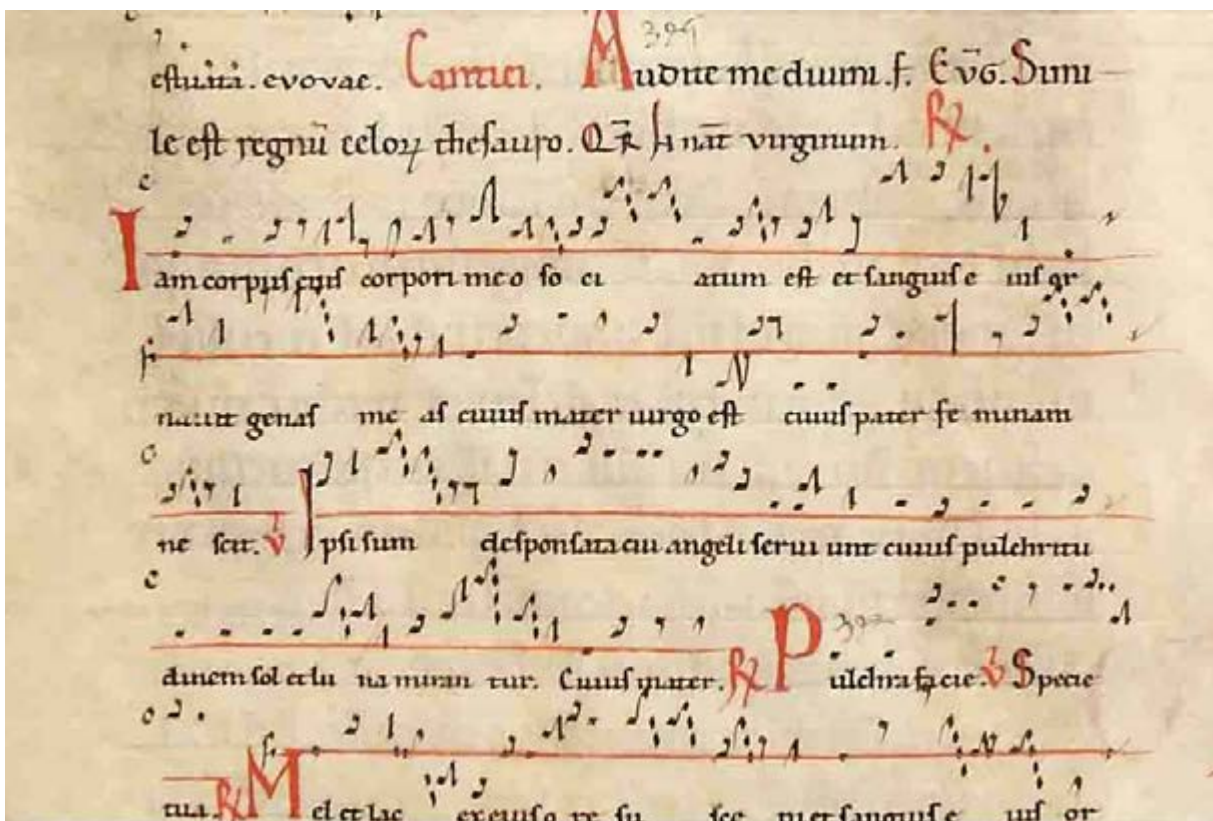 estiuitā. evovae. Cantici. Audite me diuini. f. Ev̄G. Simi
le est regnū celoꝝ thesauro. Or̄ hı nāt virginum. ℟.
Iam corpus eius corpori meo so ci atum est et sanguis e ius or
nauit genas me as cuius mater uirgo est cuius pater fe minam
ne scit. ℣ Ipsi sum desponsata cui angeli serui unt cuius pulchritu
dinem sol et lu na miran tur. Cuius mater. ℟ Pulchra facie. ℣ Specie
tua. ℟ Mel et lac ex eius o re su sce pi et sanguis e ius or